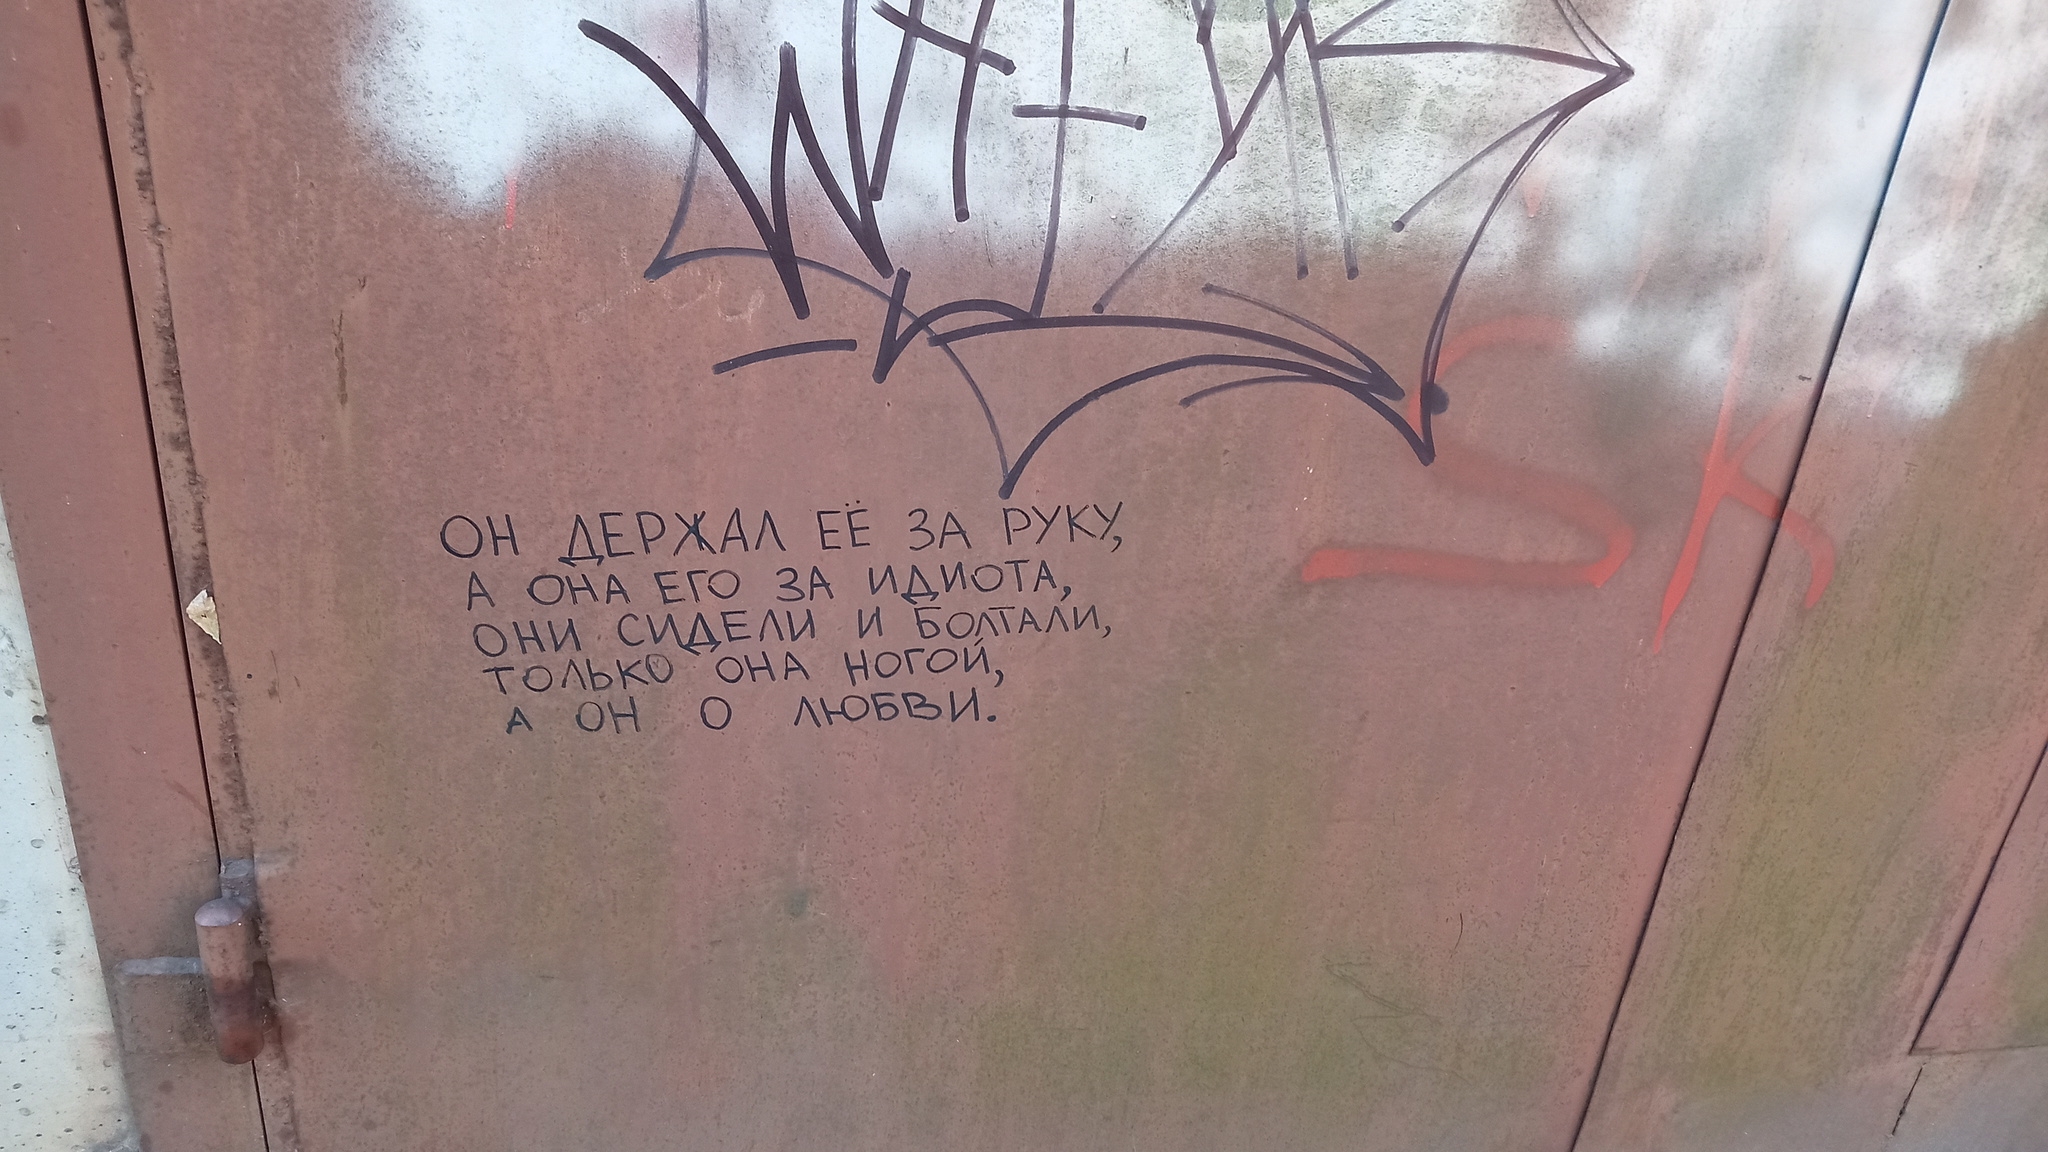 ОН ДЕРЖАЛ ЕЁ ЗА РУКУ,
А ОНА ЕГО ЗА ИДИОТА,
ОНИ СИДЕЛИ И БОЛТАЛИ,
ТОЛЬКО ОНА НОГОЙ,
А ОН О ЛЮБВИ.
SK